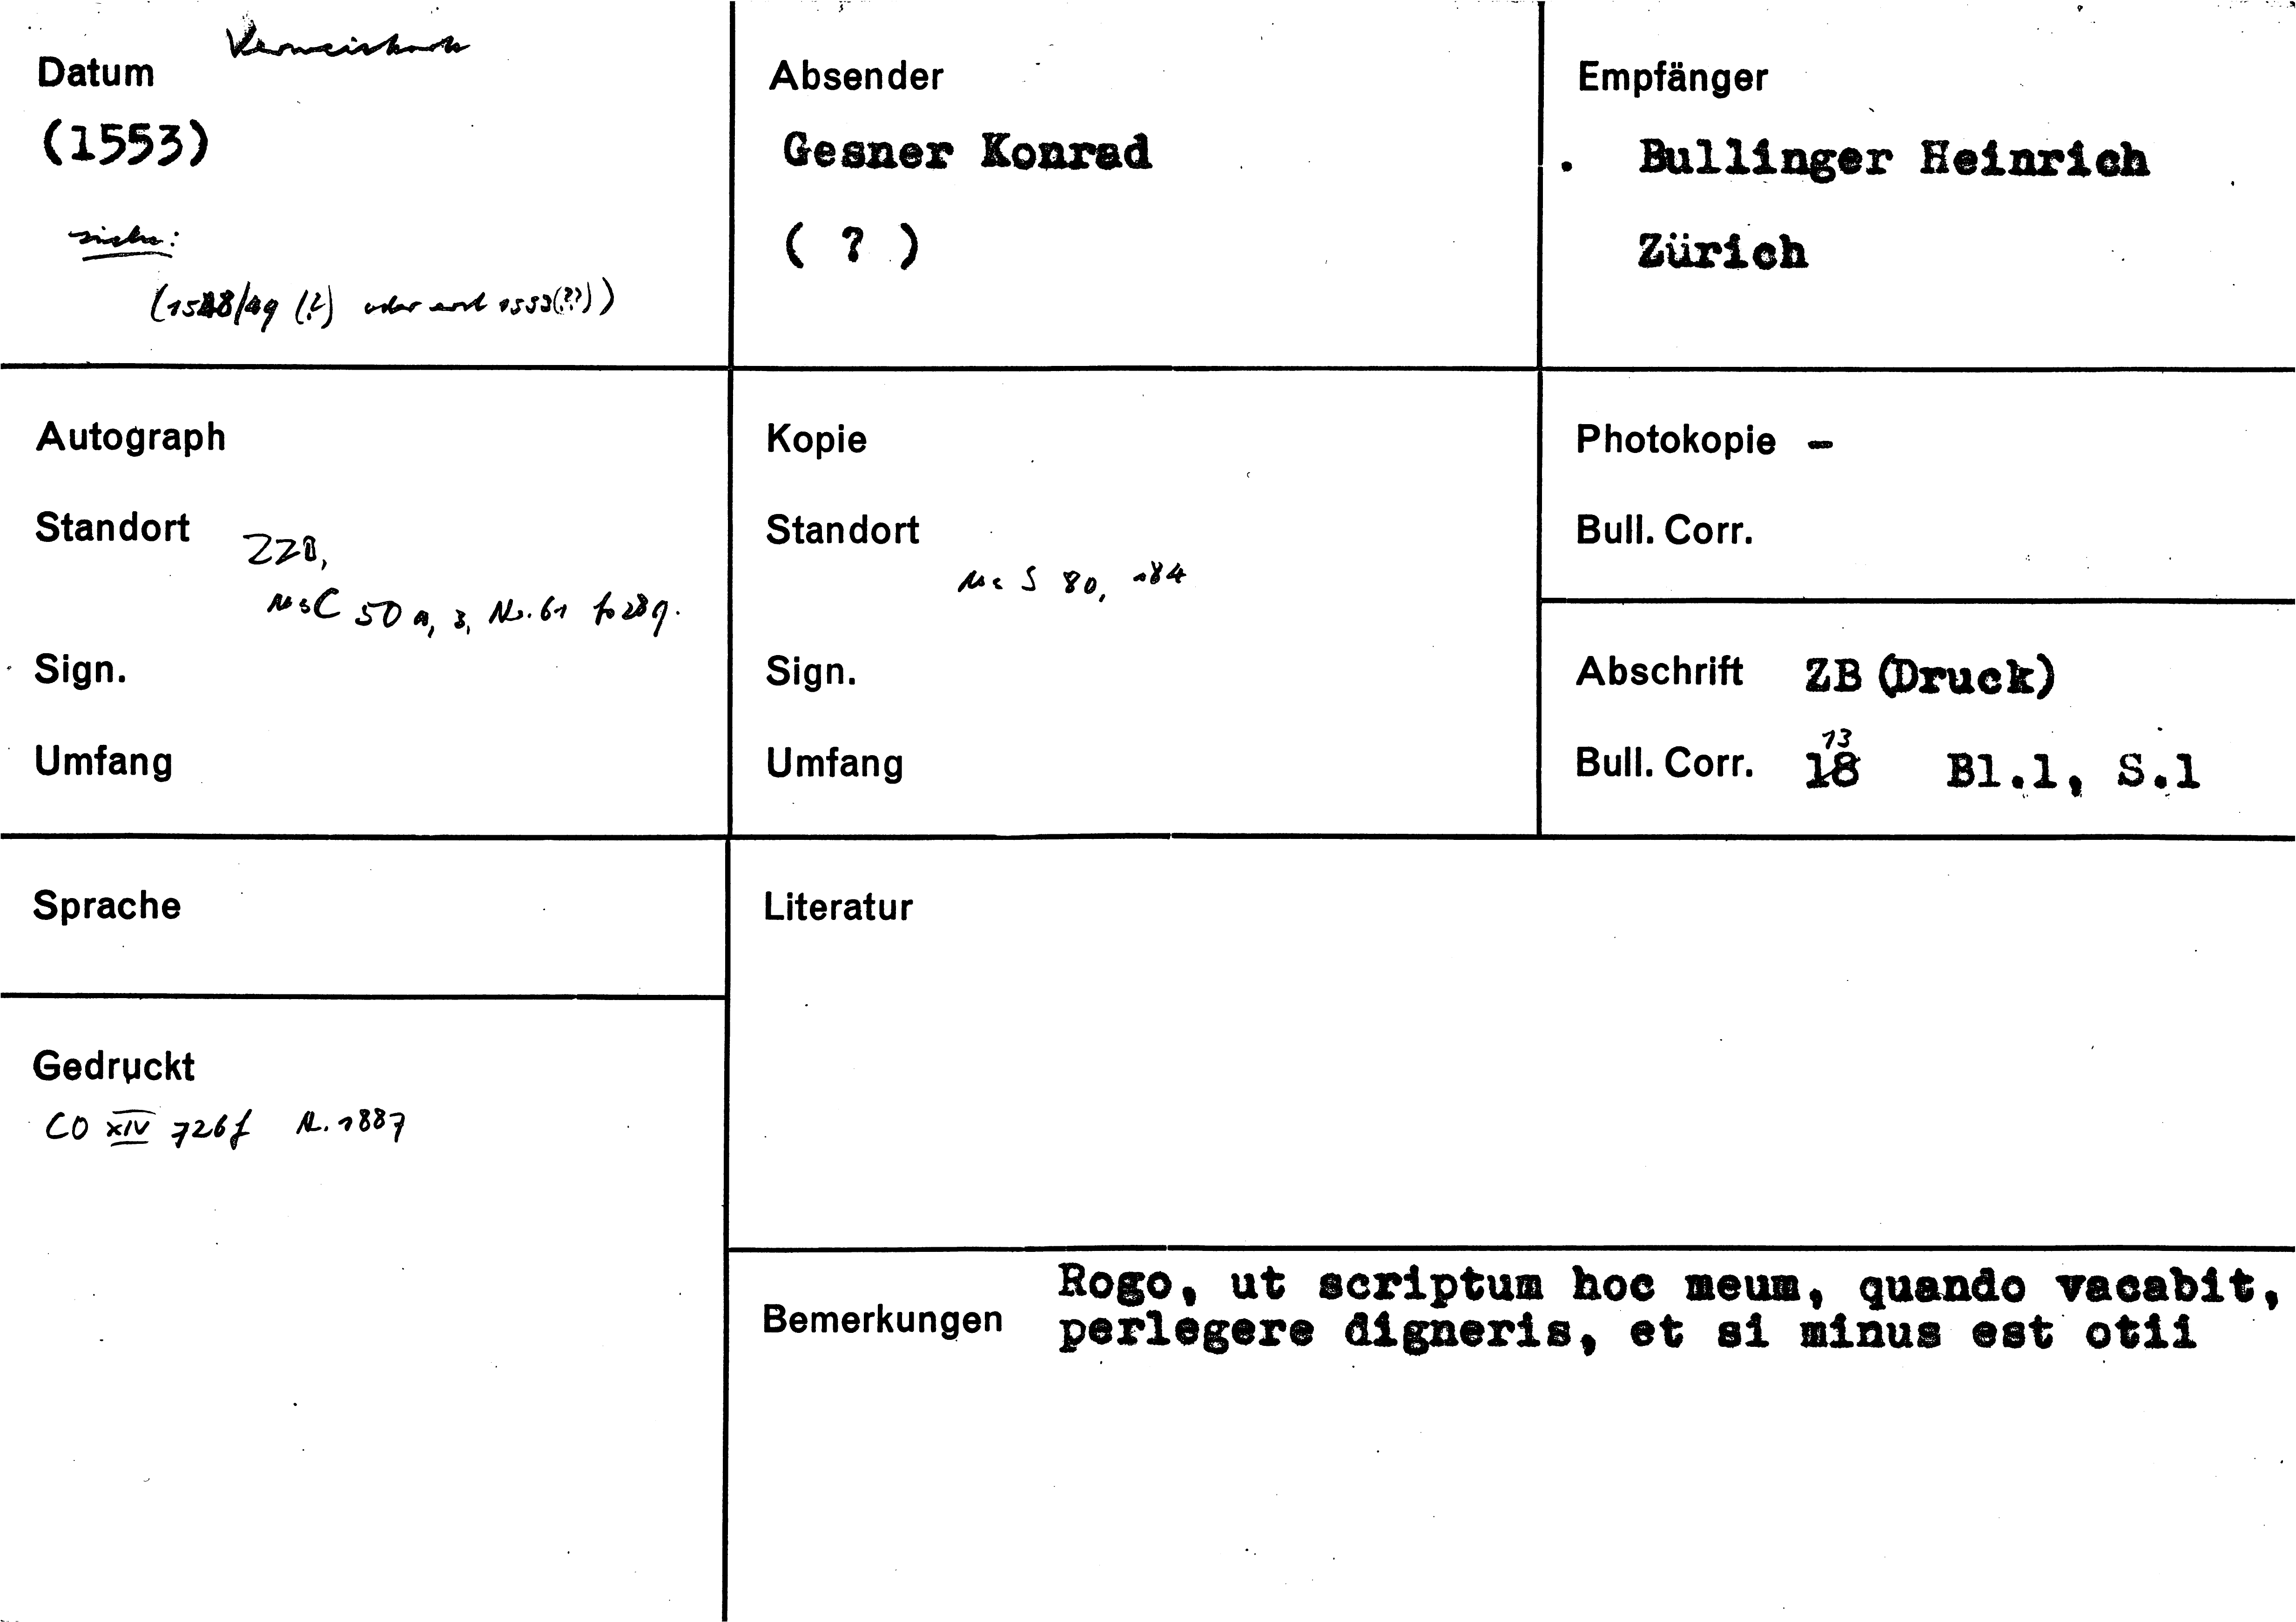 Verweiskarte
Datum
(1553)
siehe:
(1548/49 (?) oder erst 1553(??))
Absender
Gesner Konrad
( ? )
Empfänger
Bullinger Heinrich
Zürich
Autograph
Standort
ZZB,
Ms C 50 a, 3, Nr. 61 fo 289.
Sign.
Umfang
Kopie
Standort
Ms S 80, 184
Sign.
Umfang
Photokopie –
Bull. Corr.
Abschrift ZB (Druck)
13
Bull. Corr. 18 Bl.1, S.1
Sprache
Gedruckt
CO XIV 726f Nr. 1887
Literatur
Bemerkungen
Rogo, ut scriptum hoc meum, quando vacabit,
perlegere digneris, et si minus est otii